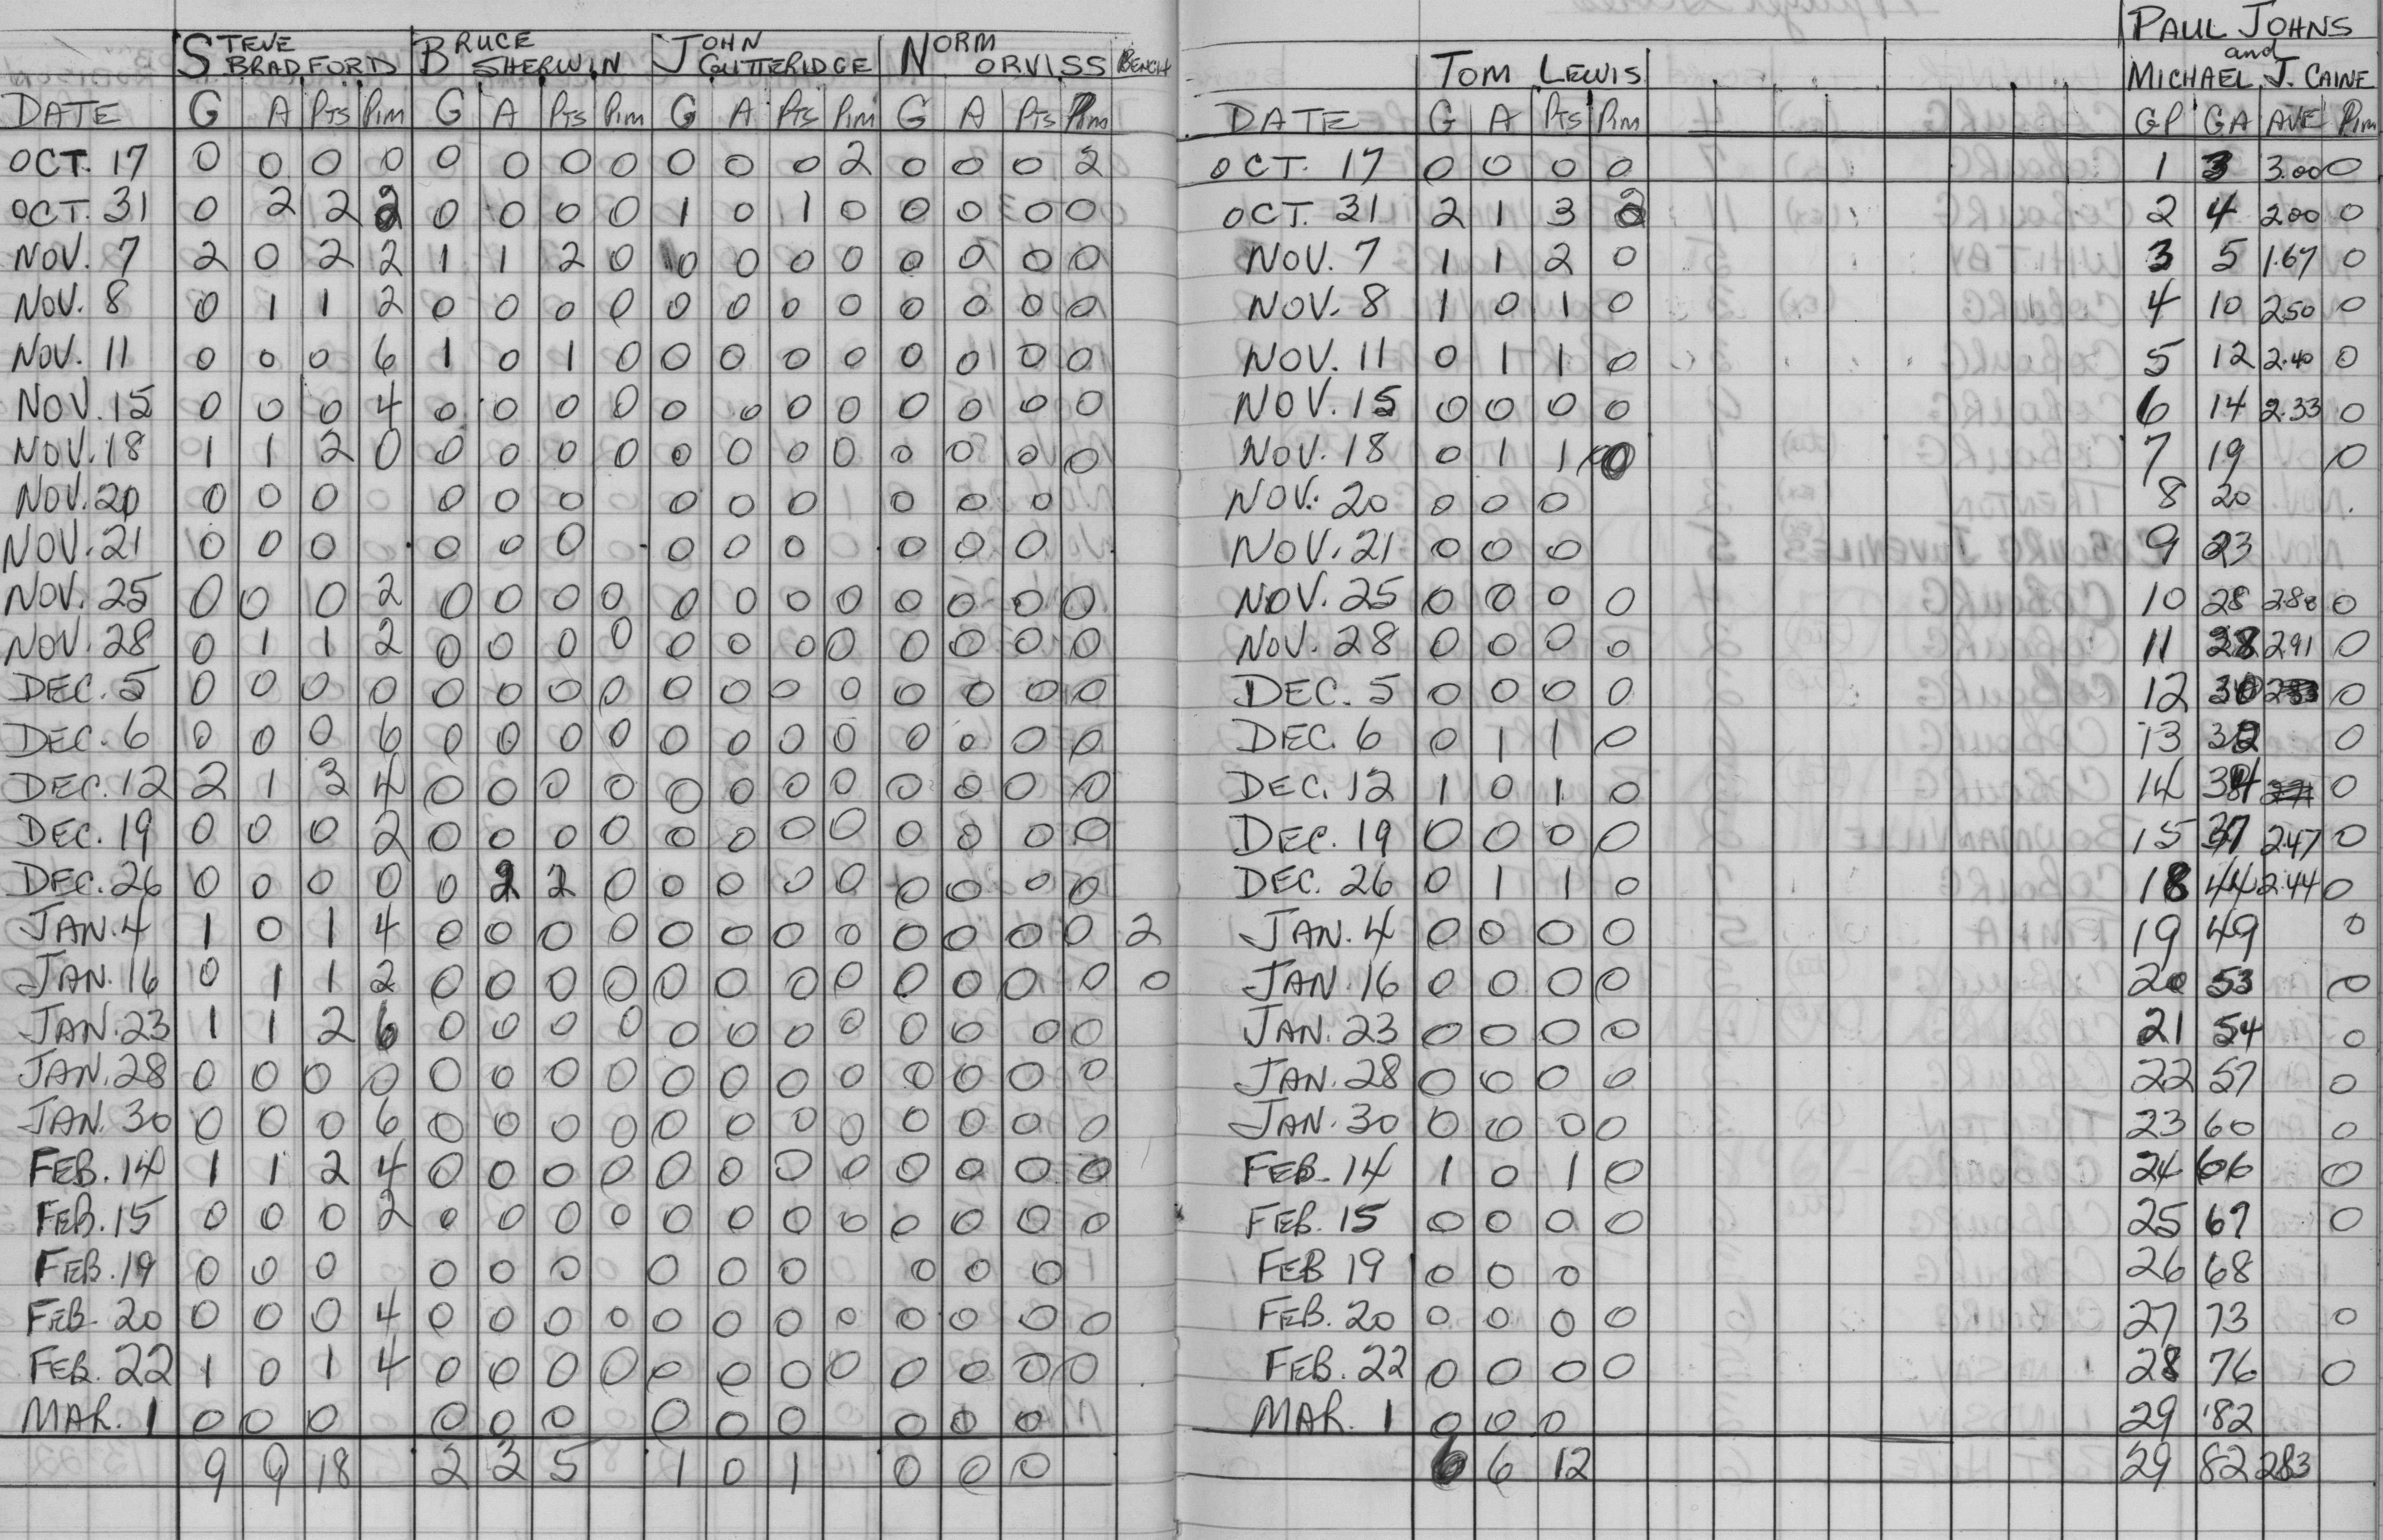 STEVE BRADFORD BRUCE SHERWIN JOHN GUTTERIDGE NORM ORVISS BENCH
DATE G A PTS PIM G A PTS PIM G A PTS PIM G A PTS PIM
OCT. 17 0 0 0 0 0 0 0 0 0 0 0 2 0 0 0 2
OCT. 31 0 2 2 2 0 0 0 0 1 0 1 0 0 0 0 0
NOV. 7 2 0 2 2 1 1 2 0 0 0 0 0 0 0 0 0
NOV. 8 0 1 1 2 0 0 0 0 0 0 0 0 0 0 0 0
NOV. 11 0 0 0 6 1 0 1 0 0 0 0 0 0 0 0 0
NOV. 15 0 0 0 4 0 0 0 0 0 0 0 0 0 0 0 0
NOV. 18 1 1 2 0 0 0 0 0 0 0 0 0 0 0 0 0
NOV. 20 0 0 0 0 0 0 0 0 0 0 0 0
NOV. 21 0 0 0 0 0 0 0 0 0 0 0 0
NOV. 25 0 0 0 2 0 0 0 0 0 0 0 0 0 0 0 0
NOV. 28 0 1 1 2 0 0 0 0 0 0 0 0 0 0 0 0
DEC. 5 0 0 0 0 0 0 0 0 0 0 0 0 0 0 0 0
DEC. 6 0 0 0 6 0 0 0 0 0 0 0 0 0 0 0 0
DEC. 12 2 1 3 4 0 0 0 0 0 0 0 0 0 0 0 0
DEC. 19 0 0 0 2 0 0 0 0 0 0 0 0 0 0 0 0
DEC. 26 0 0 0 0 0 2 2 0 0 0 0 0 0 0 0 0
JAN. 4 1 0 1 4 0 0 0 0 0 0 0 0 0 0 0 0 2
JAN. 16 0 1 1 2 0 0 0 0 0 0 0 0 0 0 0 0 0
JAN. 23 1 1 2 6 0 0 0 0 0 0 0 0 0 0 0 0
JAN. 28 0 0 0 0 0 0 0 0 0 0 0 0 0 0 0 0
JAN. 30 0 0 0 6 0 0 0 0 0 0 0 0 0 0 0 0
FEB. 14 1 1 2 4 0 0 0 0 0 0 0 0 0 0 0 0
FEB. 15 0 0 0 2 0 0 0 0 0 0 0 0 0 0 0 0
FEB. 19 0 0 0 0 0 0 0 0 0 0 0 0
FEB. 20 0 0 0 4 0 0 0 0 0 0 0 0 0 0 0 0
FEB. 22 1 0 1 4 0 0 0 0 0 0 0 0 0 0 0 0
MAR. 1 0 0 0 0 0 0 0 0 0 0 0 0
9 9 18 2 3 5 1 0 1 0 0 0
PAUL JOHNS
and
TOM LEWIS MICHAEL J. CAINE
DATE G A PTS PIM GP GA AVE PIM
OCT. 17 0 0 0 0 1 3 3.00 0
OCT. 31 2 1 3 2 2 4 2.00 0
NOV. 7 1 1 2 0 3 5 1.67 0
NOV. 8 1 0 1 0 4 10 2.50 0
NOV. 11 0 1 1 0 5 12 2.40 0
NOV. 15 0 0 0 0 6 14 2.33 0
NOV. 18 0 1 1 0 7 19 0
NOV. 20 0 0 0 8 20
NOV. 21 0 0 0 9 23
NOV. 25 0 0 0 0 10 28 2.80 0
NOV. 28 0 0 0 0 11 28 2.91 0
DEC. 5 0 0 0 0 12 30 0
DEC. 6 0 1 1 0 13 32 0
DEC. 12 1 0 1 0 14 34 0
DEC. 19 0 0 0 0 15 37 2.47 0
DEC. 26 0 1 1 0 18 44 2.44 0
JAN. 4 0 0 0 0 19 49 0
JAN. 16 0 0 0 0 20 53 0
JAN. 23 0 0 0 0 21 54 0
JAN. 28 0 0 0 0 22 57 0
JAN. 30 0 0 0 0 23 60 0
FEB. 14 1 0 1 0 24 66 0
FEB. 15 0 0 0 0 25 67 0
FEB 19 0 0 0 26 68
FEB. 20 0 0 0 0 27 73 0
FEB. 22 0 0 0 0 28 76 0
MAR. 1 0 0 0 29 82
6 6 12 29 82 2.83